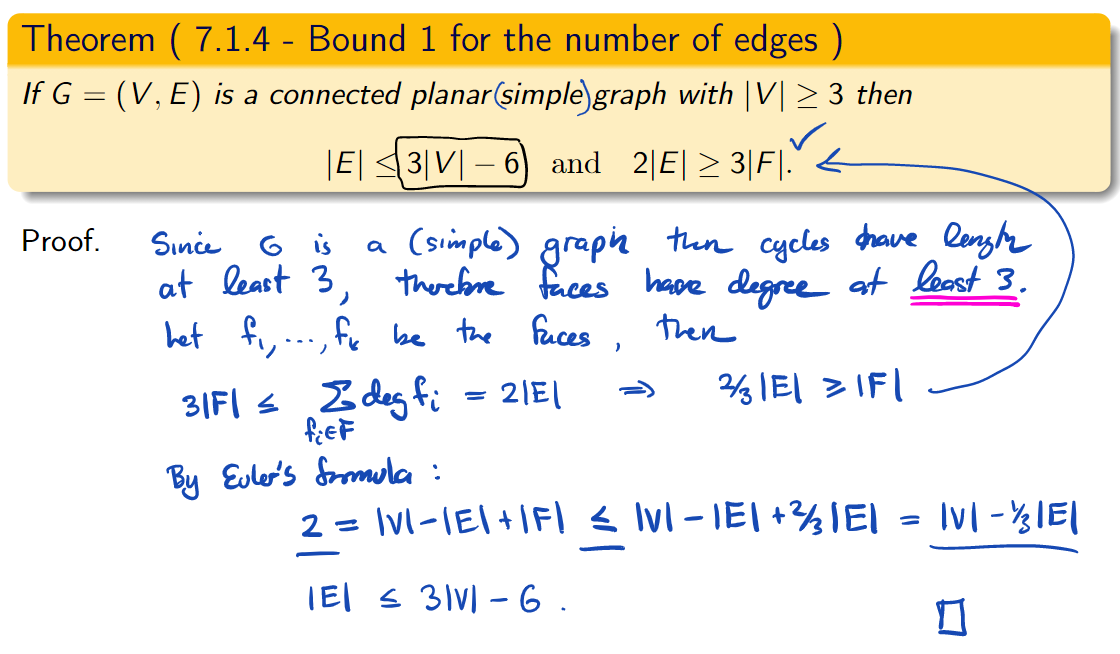 Theorem ( 7.1.4 - Bound 1 for the number of edges )
If G = (V, E) is a connected planar (simple) graph with |V| ≥ 3 then
|E| ≤ 3|V| − 6 and 2|E| ≥ 3|F|. ✓
Proof. Since G is a (simple) graph then cycles have length
at least 3, therefore faces have degree at least 3.
Let f₁, ..., fₖ be the faces, then
3|F| ≤ ∑ deg fᵢ = 2|E| ⇒ 2/3 |E| ≥ |F|
fᵢ∈F
By Euler's formula :
2 = |V| − |E| + |F| ≤ |V| − |E| + 2/3 |E| = |V| − 1/3 |E|
|E| ≤ 3|V| − 6 .
□